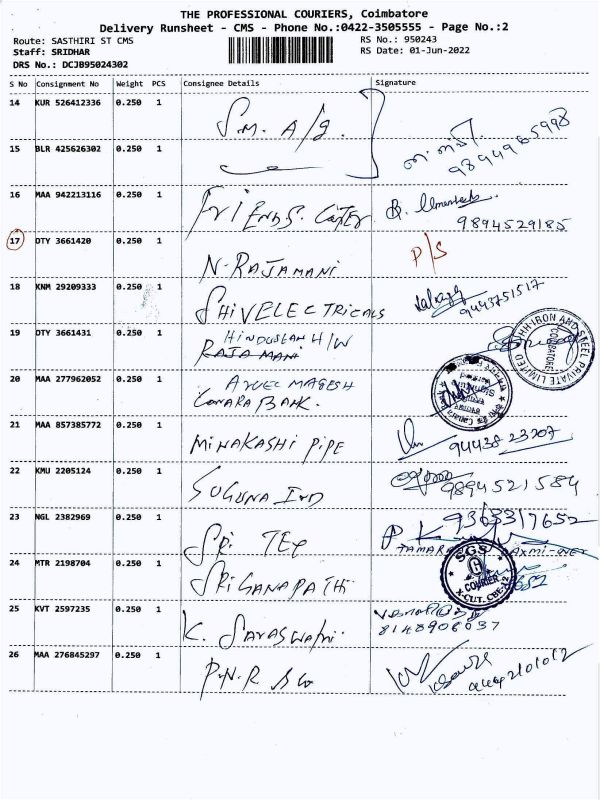 THE PROFESSIONAL COURIERS, Coimbatore
Delivery Runsheet - CMS - Phone No.:0422-3505555 - Page No.:2
Route: SASTHIRI ST CMS
RS No.: 950243
Staff: SRIDHAR
RS Date: 01-Jun-2022
DRS No.: DCJB95024302
S No Consignment No Weight PCS Consignee Details Signature
14 KUR 526412336 0.250 1
S.M. A/g.
15 BLR 425626302 0.250 1
9894965998
16 MAA 942213116 0.250 1
FRIENDS.
9894529185
17 DTY 3661420 0.250 1
N. RAJAMANI P/S
18 KNM 29209333 0.250 1
SHIVELECTRICALS 9443751517
19 DTY 3661431 0.250 1
HINDUSTAN H/W
RAJAMANI
HH IRON AND STEEL PRIVATE LIMITED
COIMBATORE
20 MAA 277962052 0.250 1
MAGESH
CANARA BANK.
21 MAA 857385772 0.250 1
MINAKASHI PIPE 94438 23207
22 KMU 2205124 0.250 1
SUGUNA IND 9894521584
23 NGL 2382969 0.250 1
SRI TEX 9363317652
24 MTR 2198704 0.250 1
SRI GANAPATHI
SGS
COURIER
X-CUT, CBE-12
25 KVT 2597235 0.250 1
K. SARASWATHI
8148906037
26 MAA 276845297 0.250 1
P.N.R